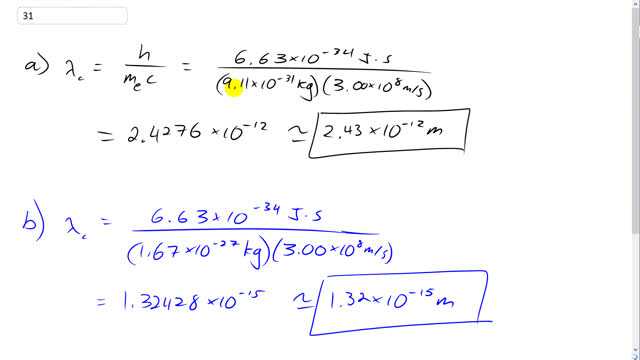 31
a) λc = h / (mₑ c) = 6.63×10⁻³⁴ J·s / (9.11×10⁻³¹ kg)(3.00×10⁸ m/s)
= 2.4276 ×10⁻¹² ≃ 2.43 ×10⁻¹² m
b) λc = 6.63×10⁻³⁴ J·s / (1.67×10⁻²⁷ kg)(3.00×10⁸ m/s)
= 1.32428 ×10⁻¹⁵ ≃ 1.32×10⁻¹⁵ m